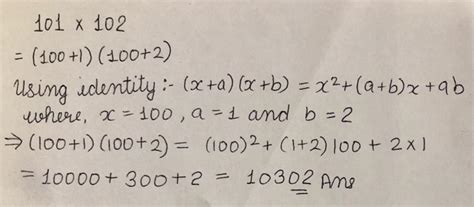 101 x 102
= (100+1) (100+2)
Using identity :- (x+a) (x+b) = x²+(a+b)x+ab
where, x = 100 , a = 1 and b = 2
⇒ (100+1) (100+2) = (100)²+ (1+2) 100 + 2×1
= 10000 + 300 + 2 = 10302 Ans